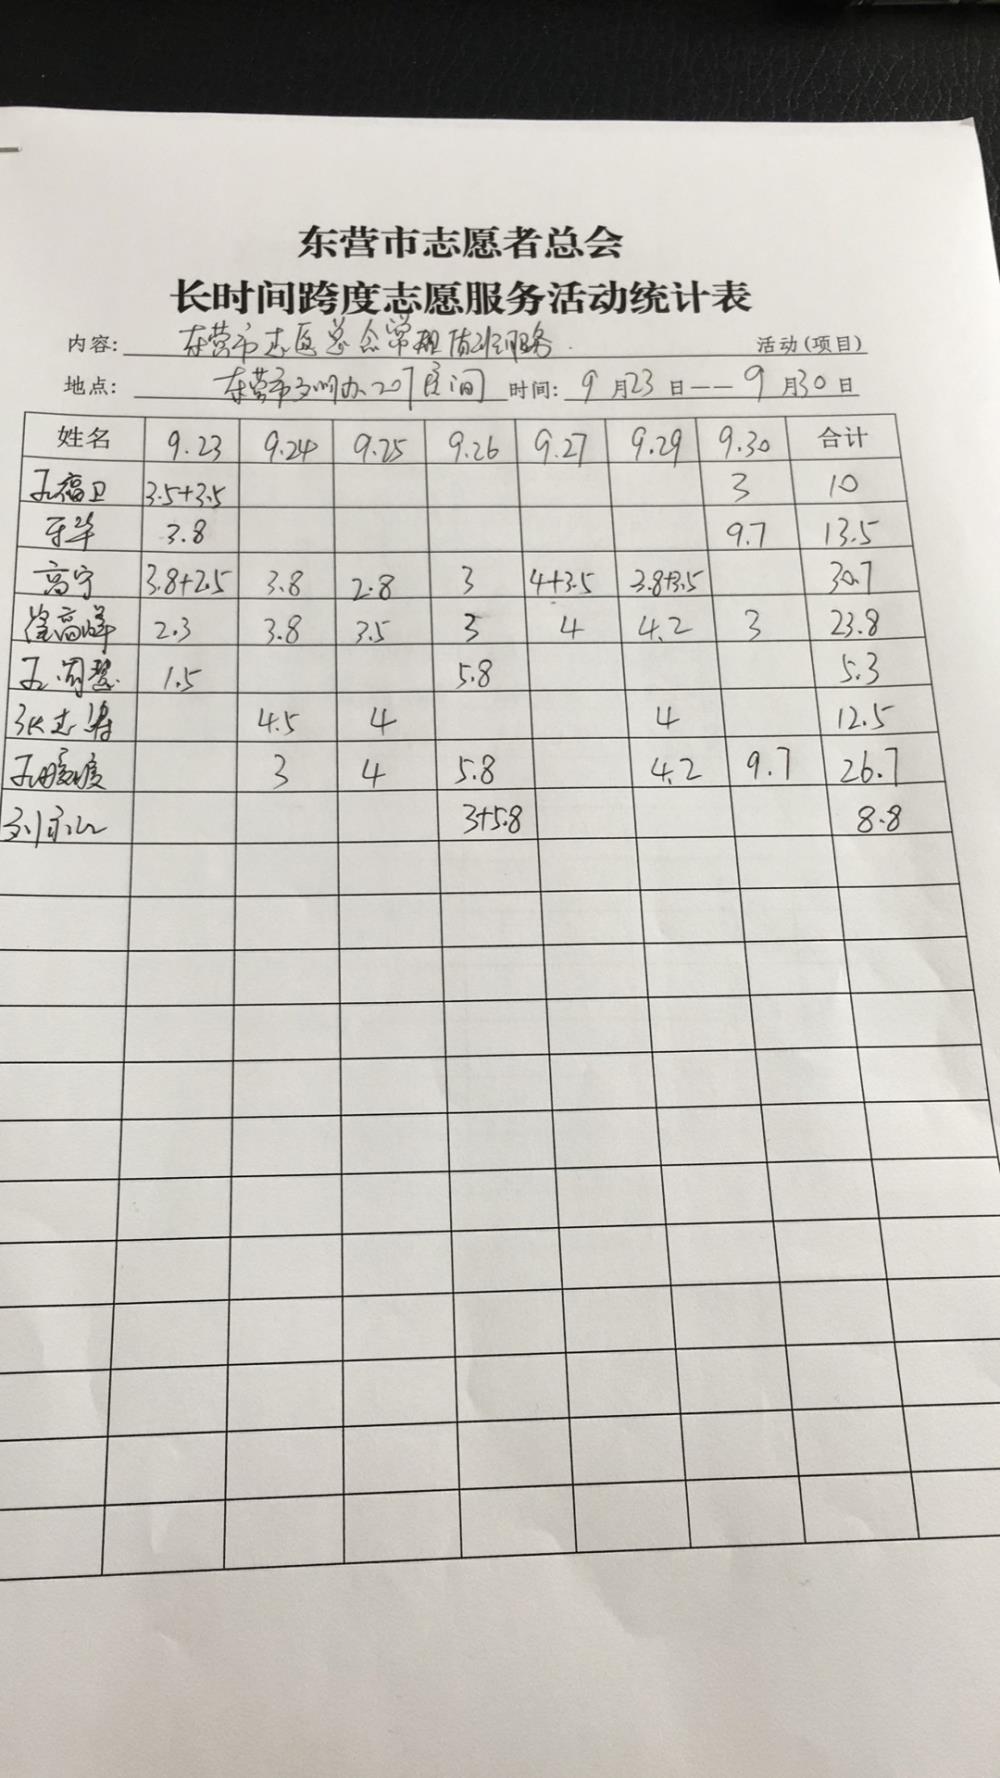 东营市志愿者总会
长时间跨度志愿服务活动统计表
内容: 东营市志愿总会常规值班服务 活动(项目)
地点: 东营市文明办207房间 时间: 9月23日——9月30日
姓名 9.23 9.24 9.25 9.26 9.27 9.29 9.30 合计
孔福卫 3.5+3.5 3 10
3.8 9.7 13.5
高宁 3.8+2.5 3.8 2.8 3 4+3.5 3.8+3.5 30.7
高峰 2.3 3.8 3.5 3 4 4.2 3 23.8
1.5 5.8 5.3
张志 4.5 4 4 12.5
3 4 5.8 4.2 9.7 26.7
3+5.8 8.8